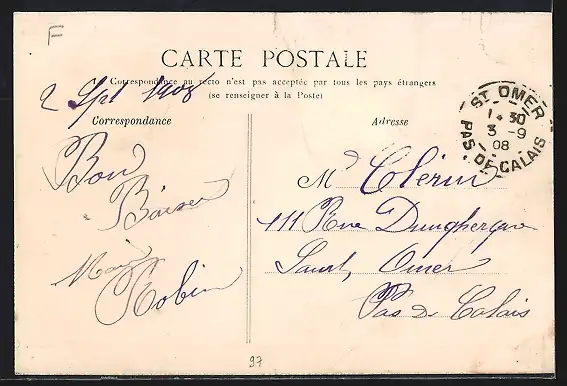 F
CARTE POSTALE
Correspondance au recto n'est pas acceptée par tous les pays étrangers
(se renseigner à la Poste)
2 Sept 1908
Correspondance
Adresse
ST OMER
1 * 30
3 -9
08
PAS-DE-CALAIS
Bon
Baiser
Marie
Robin
Md Clérin
111 Rue Dunquerque
Saint, Omer
Pas de Calais
97